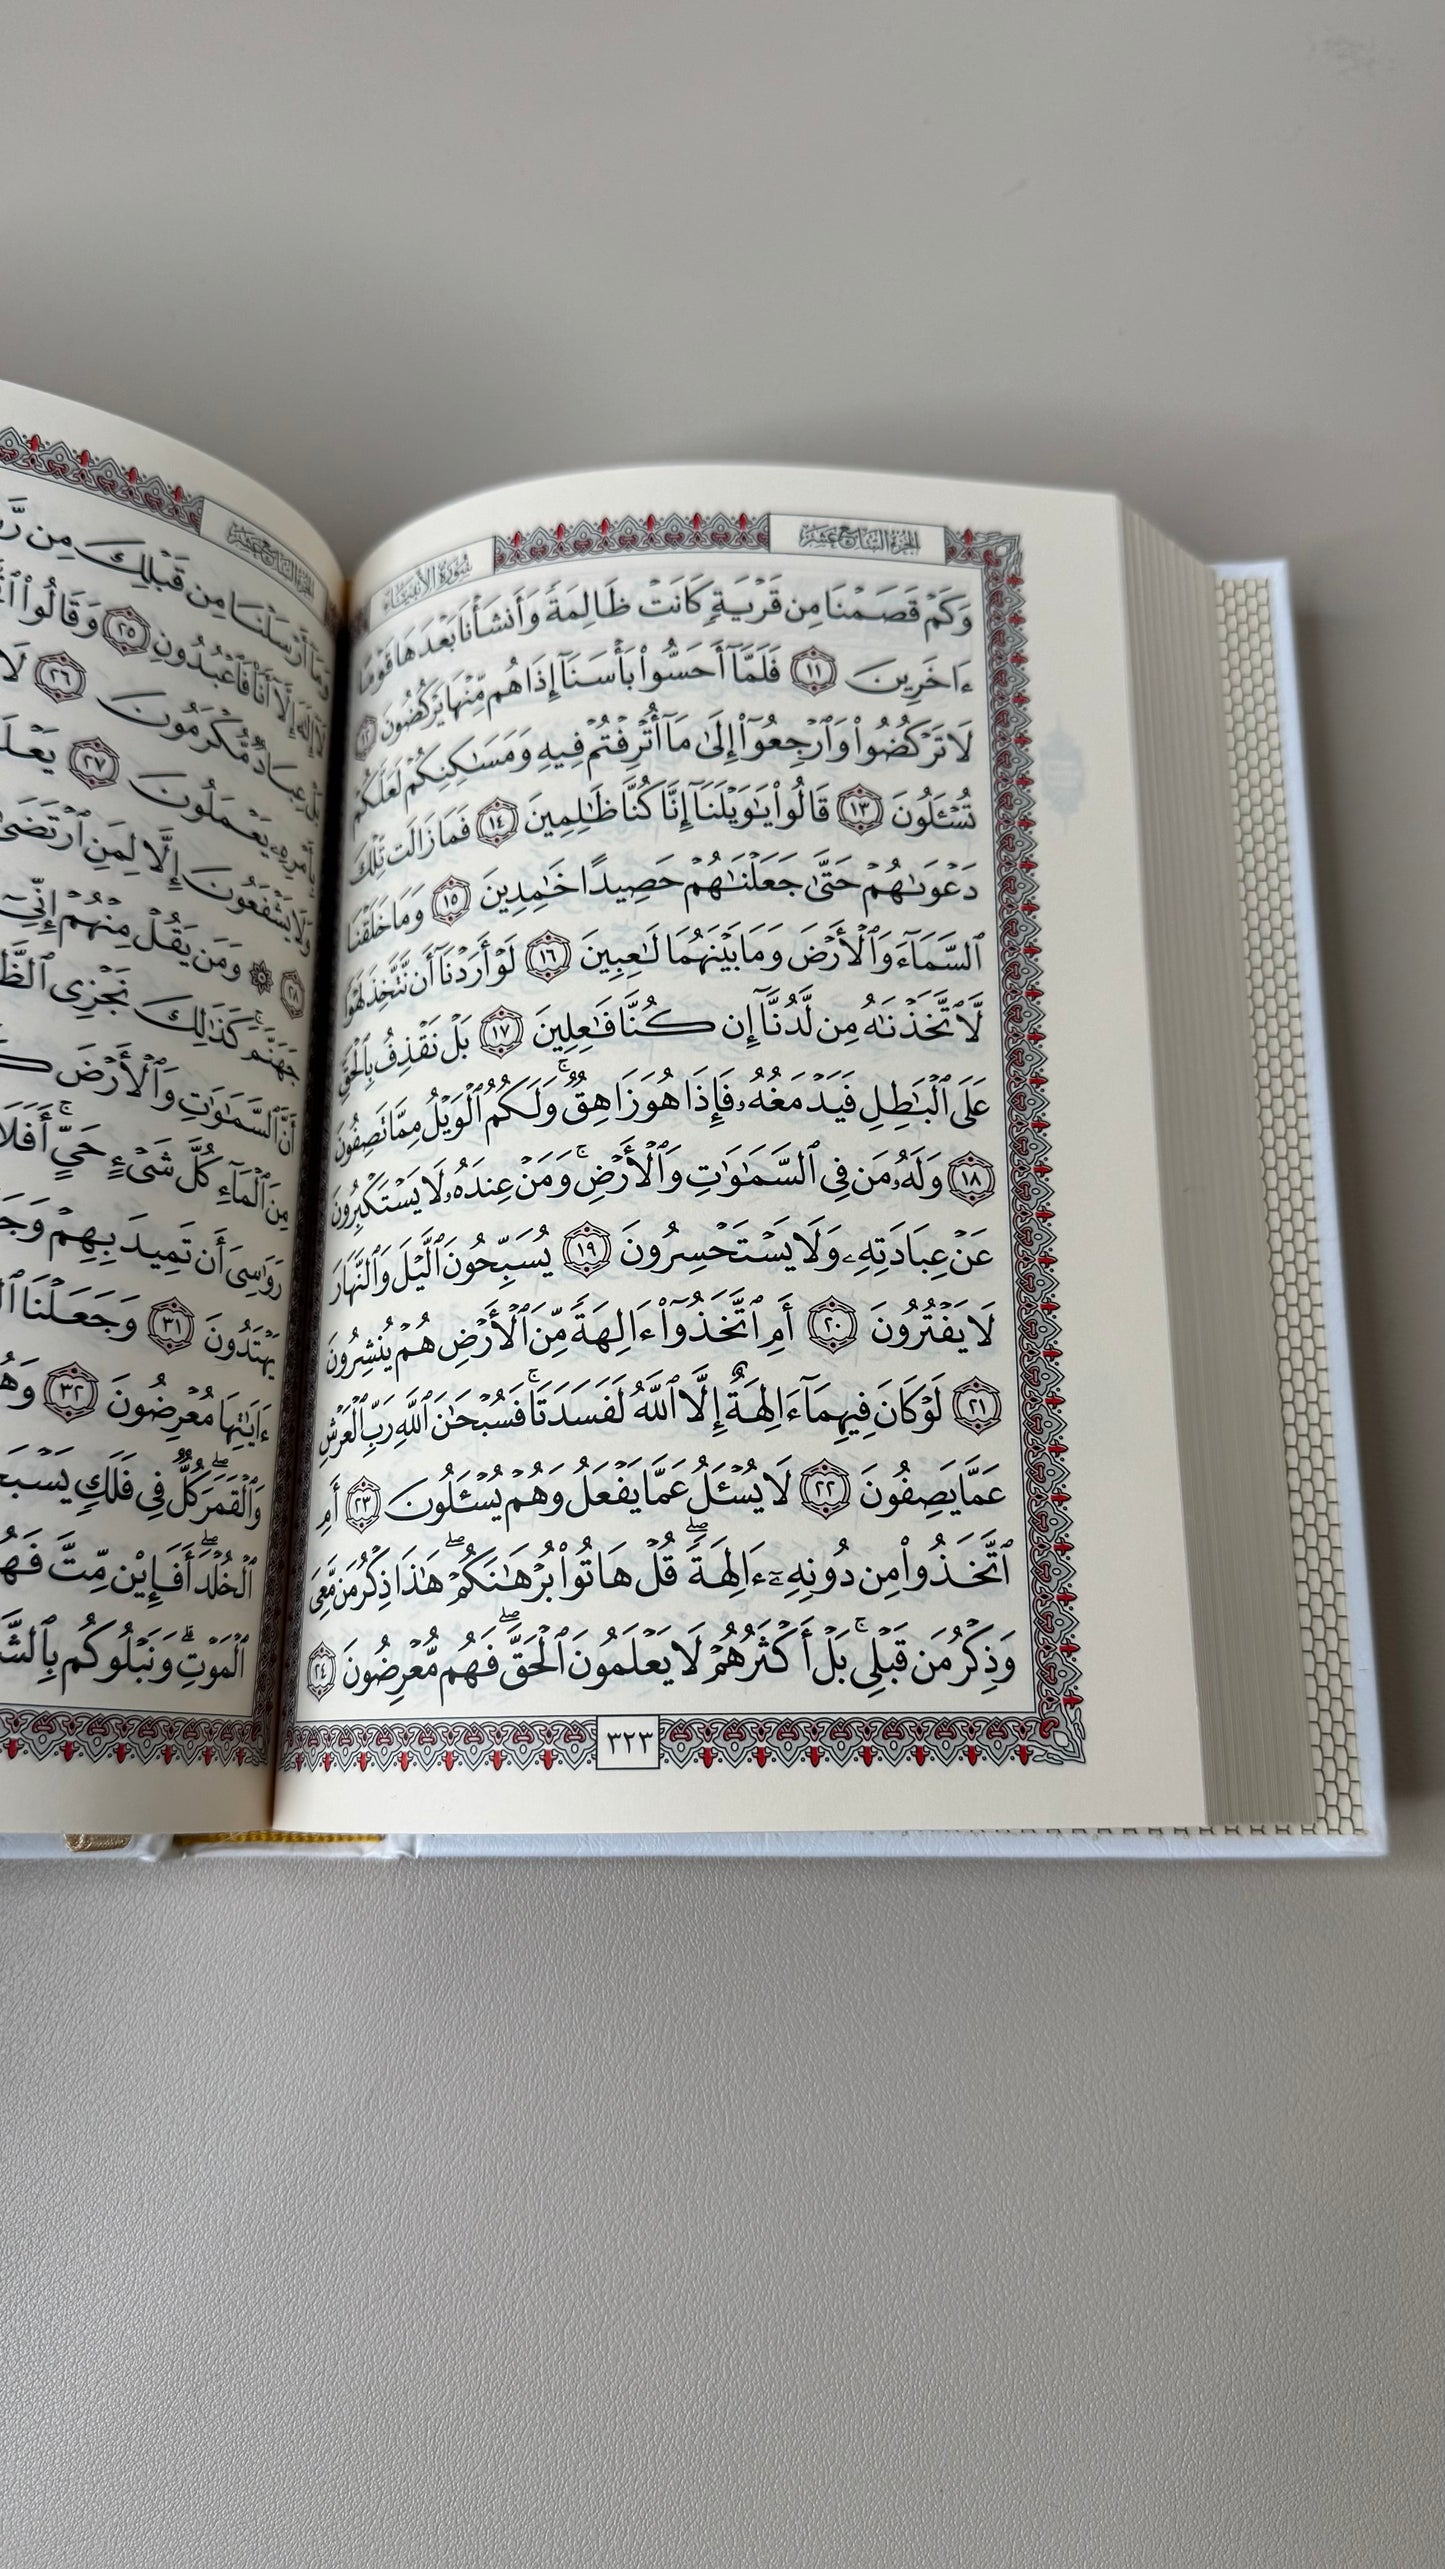 الجزء السابع عشر
سورة الأنبياء
وَكَمْ قَصَمْنَا مِن قَرْيَةٍ كَانَتْ ظَالِمَةً وَأَنشَأْنَا بَعْدَهَا قَوْمًا
ءَاخَرِينَ ١١ فَلَمَّآ أَحَسُّواْ بَأْسَنَآ إِذَا هُم مِّنْهَا يَرْكُضُونَ ١٢
لَا تَرْكُضُواْ وَٱرْجِعُوٓاْ إِلَىٰ مَآ أُتْرِفْتُمْ فِيهِ وَمَسَٰكِنِكُمْ لَعَلَّكُمْ
تُسْـَٔلُونَ ١٣ قَالُواْ يَٰوَيْلَنَآ إِنَّا كُنَّا ظَٰلِمِينَ ١٤ فَمَا زَالَت تِّلْكَ
دَعْوَىٰهُمْ حَتَّىٰ جَعَلْنَٰهُمْ حَصِيدًا خَٰمِدِينَ ١٥ وَمَا خَلَقْنَا
ٱلسَّمَآءَ وَٱلْأَرْضَ وَمَا بَيْنَهُمَا لَٰعِبِينَ ١٦ لَوْ أَرَدْنَآ أَن نَّتَّخِذَ لَهْوًا
لَّٱتَّخَذْنَٰهُ مِن لَّدُنَّآ إِن كُنَّا فَٰعِلِينَ ١٧ بَلْ نَقْذِفُ بِٱلْحَقِّ
عَلَى ٱلْبَٰطِلِ فَيَدْمَغُهُۥ فَإِذَا هُوَ زَاهِقٌ ۚ وَلَكُمُ ٱلْوَيْلُ مِمَّا تَصِفُونَ
١٨ وَلَهُۥ مَن فِى ٱلسَّمَٰوَٰتِ وَٱلْأَرْضِ ۚ وَمَنْ عِندَهُۥ لَا يَسْتَكْبِرُونَ
عَنْ عِبَادَتِهِۦ وَلَا يَسْتَحْسِرُونَ ١٩ يُسَبِّحُونَ ٱلَّيْلَ وَٱلنَّهَارَ
لَا يَفْتُرُونَ ٢٠ أَمِ ٱتَّخَذُوٓاْ ءَالِهَةً مِّنَ ٱلْأَرْضِ هُمْ يُنشِرُونَ
٢١ لَوْ كَانَ فِيهِمَآ ءَالِهَةٌ إِلَّا ٱللَّهُ لَفَسَدَتَا ۚ فَسُبْحَٰنَ ٱللَّهِ رَبِّ ٱلْعَرْشِ
عَمَّا يَصِفُونَ ٢٢ لَا يُسْـَٔلُ عَمَّا يَفْعَلُ وَهُمْ يُسْـَٔلُونَ ٢٣ أَمِ
ٱتَّخَذُواْ مِن دُونِهِۦٓ ءَالِهَةً ۖ قُلْ هَاتُواْ بُرْهَٰنَكُمْ ۖ هَٰذَا ذِكْرُ مَن مَّعِىَ
وَذِكْرُ مَن قَبْلِى ۚ بَلْ أَكْثَرُهُمْ لَا يَعْلَمُونَ ٱلْحَقَّ ۖ فَهُم مُّعْرِضُونَ ٢٤
٣٢٣
الجزء السابع عشر
وَمَآ أَرْسَلْنَا مِن قَبْلِكَ مِن
إِلَّآ أَنَا۠ فَٱعْبُدُونِ ٢٥ وَقَالُواْ
عِبَادٌ مُّكْرَمُونَ ٢٦ لَا
يَعْمَلُونَ ٢٧
وَلَا يَشْفَعُونَ إِلَّا لِمَنِ ٱرْتَضَىٰ
٢٨ ۞ وَمَن يَقُلْ مِنْهُمْ إِنِّىٓ
جَهَنَّمَ ۚ كَذَٰلِكَ نَجْزِى
أَنَّ ٱلسَّمَٰوَٰتِ وَٱلْأَرْضَ
مِنَ ٱلْمَآءِ كُلَّ شَىْءٍ حَىٍّ ۖ
رَوَٰسِىَ أَن تَمِيدَ بِهِمْ
يَهْتَدُونَ ٣١ وَجَعَلْنَا
ءَايَٰتِهَا مُعْرِضُونَ ٣٢
وَٱلْقَمَرَ ۖ كُلٌّ فِى فَلَكٍ
ٱلْخُلْدَ ۖ أَفَإِيْن مِّتَّ
ٱلْمَوْتِ ۗ وَنَبْلُوكُم